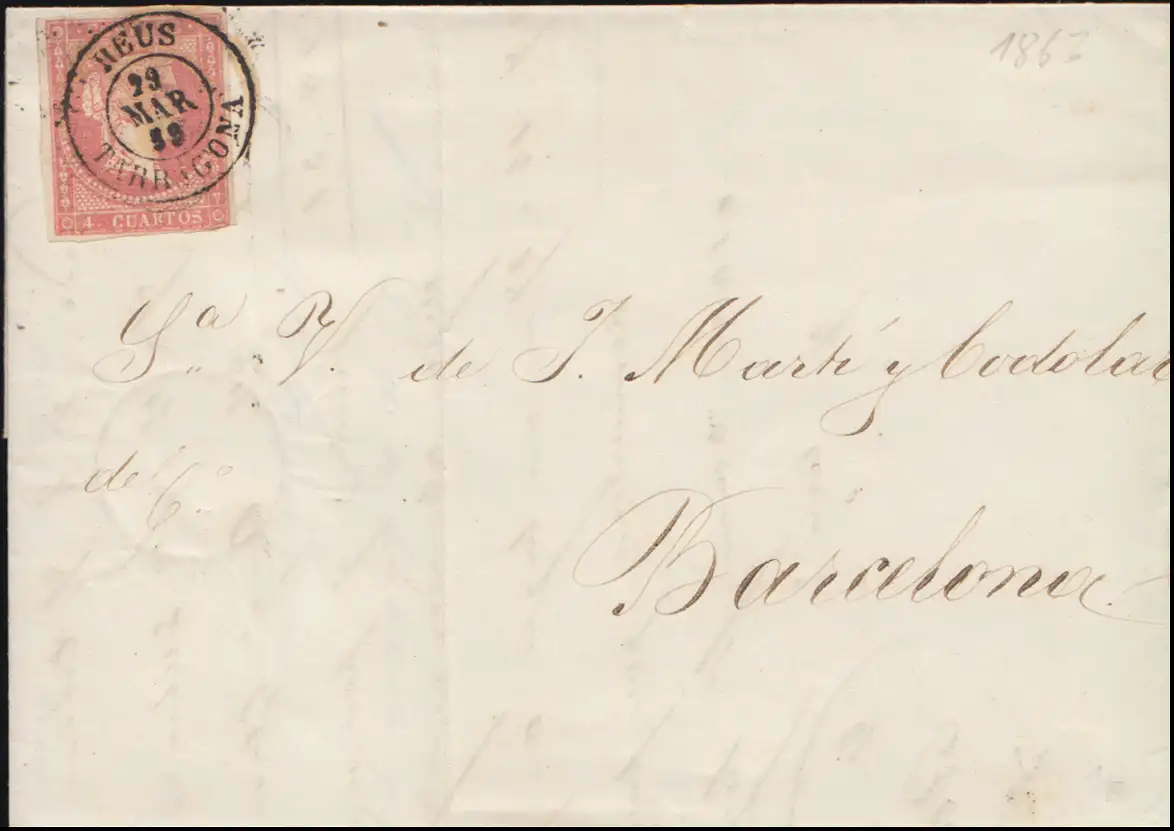 REUS
29
MAR
59
TARRAGONA
4 CUARTOS
186
Sra V. de J. Martí y Codolar
de Co
Barcelona